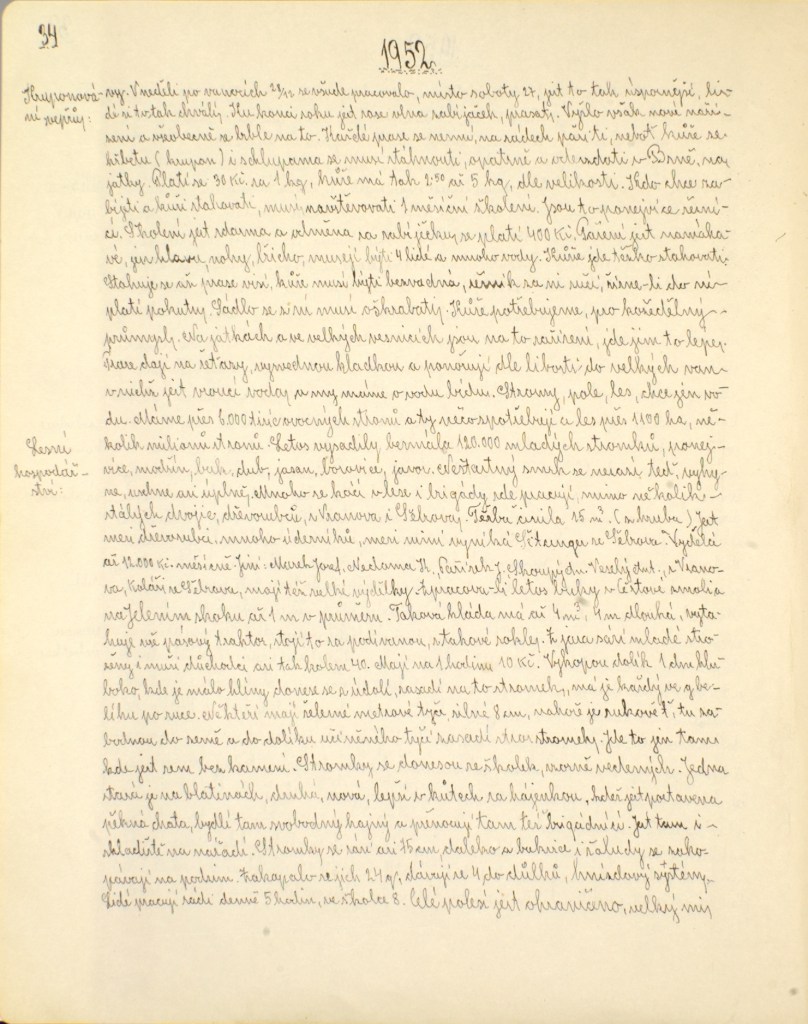 34
1952.
Kruponová-
ní vepřů:
vy. V neděli po vanocích 28/12 se všude pracovalo, místo soboty 27, jest to tak úspornější, lid
dí si to tak chválí. Ku konci roku jest zase vlna zabíjaček, prasat. Vyšlo však nové naří-
zení a všeobecně se brble na to. Každé prase se nesmí, na sádech pářiti, neboť kůže se
hřbetu (krupon) i se chlupama se musí stáhnouti, opatrně a odendati v Brně, na
jatky. Platí se 30 Kč. za 1 kg, kůže má tak 2·50 až 5 kg, dle velikosti. Kdo chce za-
bíjeti a kůži stahovati, musí navštěvovati 1 měsíční školení. Jsou to ponejvíce řezní-
ci. Školení jest zdarma a odměna za zabíječku, se platí 400 Kč. Paření jest namáha-
vé, jen hlavu, nohy, břicho, musejí býti 4 lidé a mnoho vody. Kůže jde těžko stahovati.
Stahuje se až prase visí, kůže musí býti bezvadná, řezník za ni ručí, řízne-li do ní
platí pokuty. Sádlo se s ní musí oškrabati. Kůže potřebujeme, pro kožedělný
průmysl. Na jatkách a ve velkých vesnicích jsou na to zařízení, jde jim to lépe.
Prase dají na řetězy, vyzvednou kladkou a ponořují dle libosti do velkých van
v nichž jest vroucí voda, a my máme o vodu bídu. Stromy, pole, les, chce jen vo-
du. Máme přes 6.000 tisíc ovocných stromů a ty něco spotřebují a les přes 1100 ha, ně-
Lesní
hospodář-
ství:
kolik milionů stromů. Letos vysadily bezmála 120.000 mladých stromků, ponej-
více, modřín, buk, dub, jasan, borovice, javor. Nešťastný smrk se nesází teď, vyhy-
ne, uschne asi úplně. Mnoho se kácí v lese i brigády zde pracují, mimo několik
stálých dvojic, dřevorubců, z Vranova i Útěchova. Těžba činila 15 m³. (z hruba) Jest
mezi dřevorubci, mnoho úderníků, mezi nimi vyniká Štangu ze Útěchova. Vydělá
až 12.000 Kč. měsíčně. Jiní: Marek Josef, Neclama K., Pařízek J., Skoupý du. Veselý Ant., z Vrano-
va, Kolář ze Útěchova, mají též velké výdělky. Zpracova-li letos buky v Čertově smolia
na Jelením skoku až 1 m v průměru. Taková kláda má až 4 m³, 4 m dlouhá, vyta-
huje vše pásový traktor, stojí to za podívanou, z takové rokle. Z jara sází mladé stro-
ženy i muži důchodci asi tak kolem 40. Mají na 1 hodinu 10 Kč. Vykopou dolík 1 dm hlu-
boko, kde je málo hlíny donese se z údolí, zasadí na to stromek, má je každý ve gbe-
líku po ruce. Někteří mají železné metrové tyče, silné 8 cm, nahoře je rukověť, tu za-
bodnou do země a do dolíku učiněného tyčí zasadí stromky. Jde to jen tam
kde jest zem bez kamení. Stromky se donesou ze školek, vzorně vedených. Jedna
stará je na blatinách, druhá, nová, lepší v kútech za hájenkou, kde jest postavena
pěkná chata, bydlí tam svobodný hajný a přenocují tam též brigádníci. Jest tam i
skladiště na nářadí. Stromky se sází asi 75 cm daleko a bukvice i žaludy se zako-
pávají na podzim. Zakopalo se jich 24 q, dávají se 4 do důlků, hnízdový systém.
Lidé pracují rádi denně 5 hodin, ve školce 8. Celé polesí jest ohraničeno, velký mi-